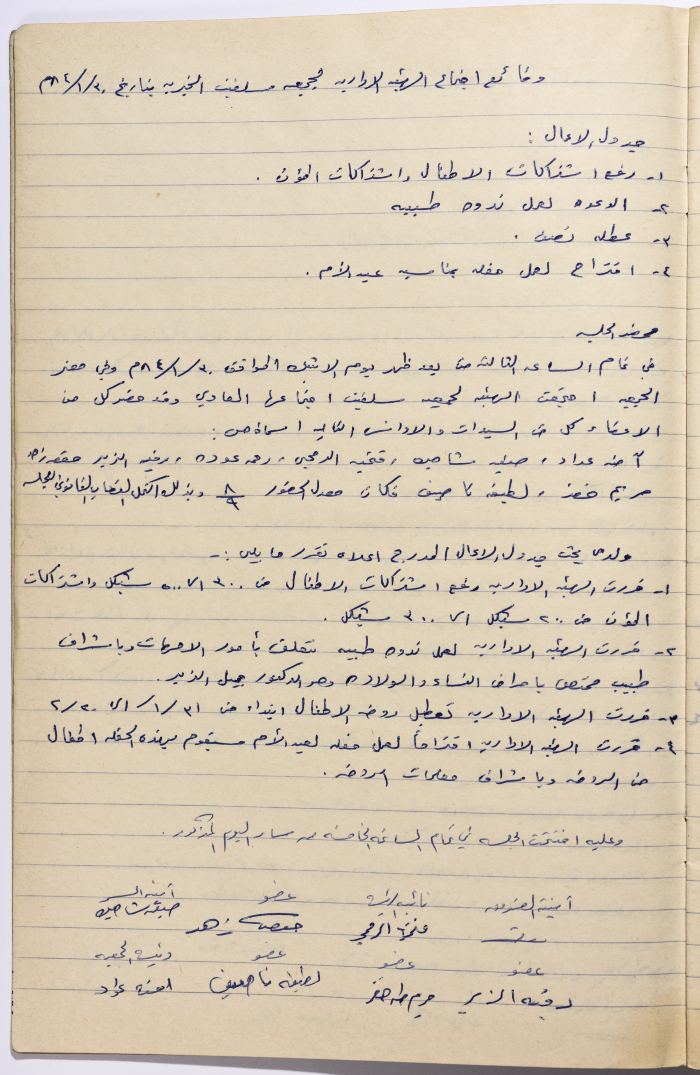 وقائع اجتماع الهيئه الاداريه لجمعيه سلفيت الخيريه بتاريخ ٨٤/١/٣٠م
جدول الاعمال :
١- رفع اشتراكات الاطفال واشتراكات المؤن .
٢- الدعوه لعمل ندوه طبيه
٣- عطله نصف .
٤- اقتراح لعمل حفله بمناسبه عيد الأم .
محضر الجلسه
في تمام الساعه الثالثه من بعد ظهر يوم الاثنين الموافق ٨٤/١/٣٠م وفي مقر
الجمعيه اجتمعت الهيئه لجمعيه سلفيت اجتماعها العادي وقد حضر كل من
الاعضاء كل من السيدات والاوانس التاليه اسماؤهن :
آمنه عواد ، صفيه شاهين ، فتحيه الرمحي ، رحمه عوده ، رقيه الزير حفصه زهد
مريم خفش ، لطيفه ناصيف فكان معدل الحضور ٨/٩ وبذلك اكتمل النصاب القانوني للجلسه
ولدى بحث جدول الاعمال المدرج اعلاه تقرر ما يلي :-
١- قررت الهيئه الاداريه رفع اشتراكات الاطفال من ٣٠٠ الى ٥٠٠ شيكل واشتراكات
المؤن من ٢٠٠ شيكل الى ٣٠٠ شيكل .
٢- قررت الهيئه الاداريه لعمل ندوه طبيه تتعلق بأمور الامهات وباشراف
طبيب مختص بامراض النساء والولاده وهو الدكتور جميل الزير .
٣- قررت الهيئه الاداريه تعطيل روضه الاطفال ابتداء من ١/٣١ الى ٢/٢٠
٤- قررت الهيئه الاداريه اقتراحاً لعمل حفله لعيد الأم ستقوم بهذه الحفله اطفال
من الروضه وباشراف معلمات الروضه .
وعليه اختتمت الجلسه في تمام الساعه الخامسه من مساء اليوم المذكور .
أمينة الصندوق نائب الرئيسه عضو أمينه السر
فتحيه الرمحي حفصه زهد صفيه شاهين
عضو عضو عضو رئيسه الجمعيه
رقيه الزير مريم خفش لطيفه ناصيف امنه عواد